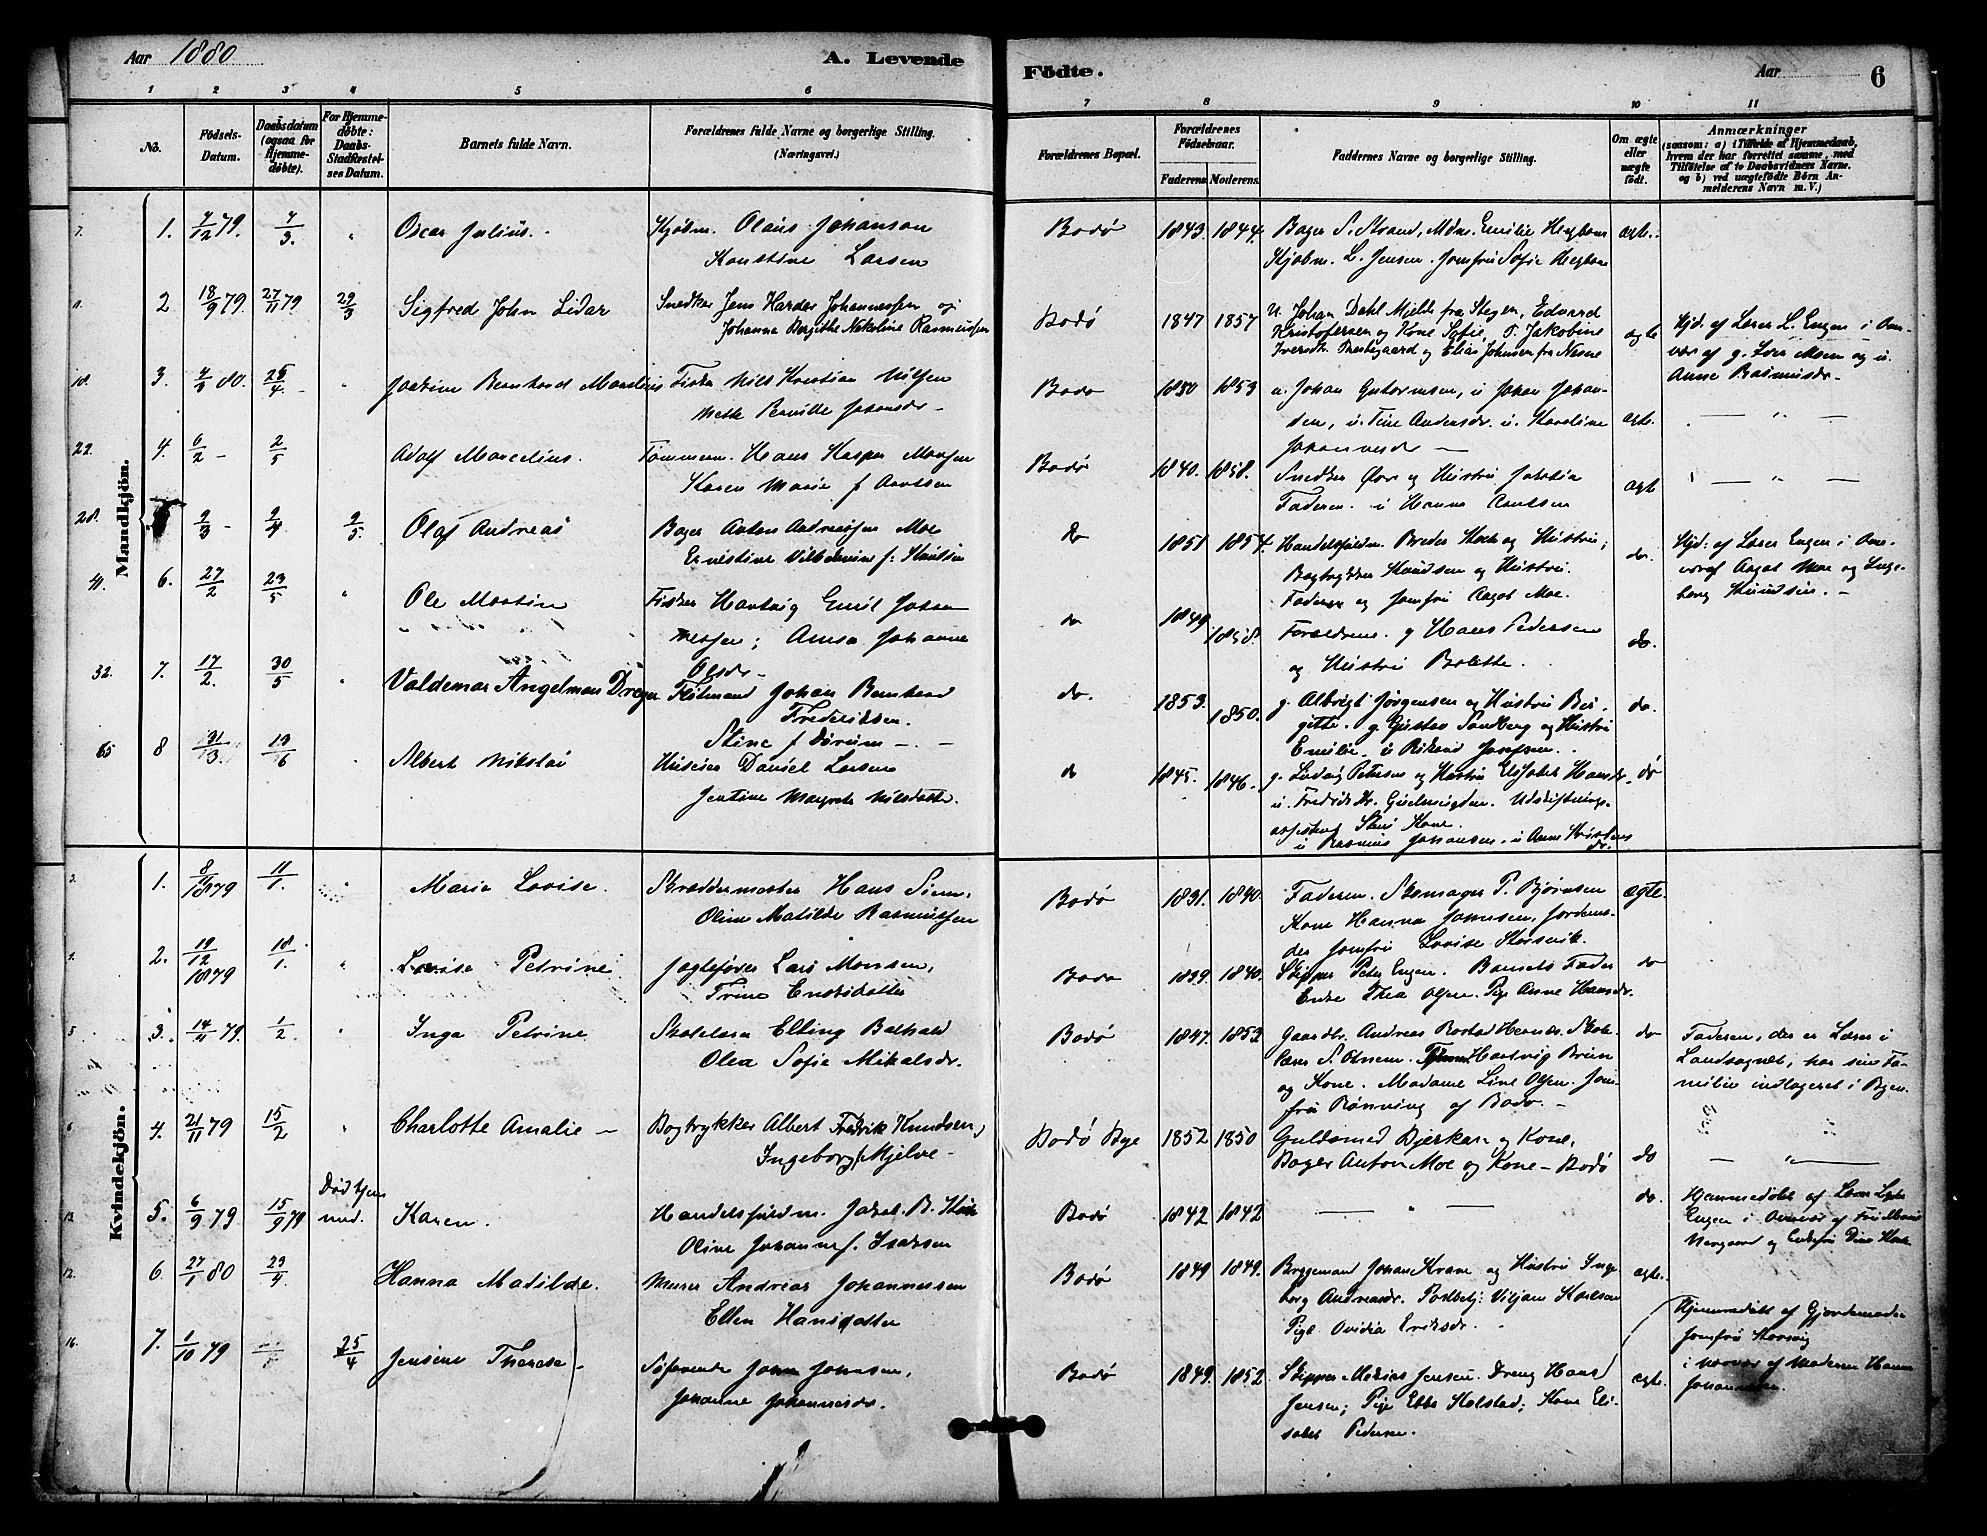 Aar 1880
A. Levende
Födte.
Aar
6
1 2 3 4 5 6 7 8 9 10 11
No.
Födsels-
Datum.
Daabsdatum
(ogsaa for
Hjemme-
döbte).
For Hjemme-
döbte:
Daabs-
Stadfæstel-
ses Datum.
Barnets fulde Navn.
Forældrenes fulde Navne og borgerlige Stilling.
(Næringsvei.)
Forældrenes Bopæl.
Forældrenes
Födselsaar.
Faderens. Moderens.
Faddernes Navne og borgerlige Stilling.
Om ægte
eller
uægte
födt.
Anmærkninger
(saasom: a) i Tilfælde af Hjemmedaab,
hvem der har forrettet samme, med
Tilföielse af to Daabsvidners Navne.
og b) ved uægtefödte Börn An-
melderens Navn m. V.)
Mandkjön.
7. 1. 7/12 79. 7/3. " Oscar Julius. Kjøbm. Olaus Johanson
Konstine Larsen
Bodø 1843. 1844. Bager S. Strand, Mdm. Emilie
Kjøbm. L. Jensen. Jomfru Sofie
ægte.
2 18/9 79. 27/11 79 29/3 Sigfred John Lidar Snedker Jens Harder Johannessen og
Johanna Birgitthe Nikoline Rasmussen
Bodø 1847 1857 U. Johan Dahl Mjelde fra Stegen, Edvard
Kristofersen og Kone Sofie, T. Jakobine
Iversdr. Prestegaard og Elias Johnsen fra Nesne
ægte Hjd. af Lærer L. Engen i
af g. Iver Moen og u.
Anne Rasmusdr.
18. 3. 7/3 80. 25/4. " Joakim Bernhard Mandius Fisker Nils Kristian Nilsen
Mette Pernille Johansdr.
Bodø 1850 1853 u. Johan Gutormsen, u Johan Johan-
sen, u. Tine Andersdr. u. Karoline
Johannesdr
ægte. "
22. 4. 6/2 2/5 Adolf Marcelius. Tømmerm. Hans Kasper Monsen
Karen Marie f. Arntsen
Bodø 1840. 1858. Snedker og Hustru
Faderen. u Hanna Arntsen
ægt "
28. 2/3 2/4 2/5. Olaf Andreas Bager Anton Andreassen Moe
Ernestine Vilhelmine f. Knutsen
do 1851 1854. Handelsfuldm. Breder Koch og Hustru;
Bogtrykker Knudsen og Hustru.
Faderen og Jomfru Aagot Moe.
do. Hjd: af Lærer Engen i
af Aagot Moe og Inge-
borg Knudsen.
41. 6. 27/2 23/5 " Ole Martin Fisker Hartvig Emil Johan
nessen; Anna Johanna
Olsdr
do 1849 1858. Forældrene. g Hans Pedersen
og Hustru Bolette.
do.
32. 7. 17/2. 30/5 " Valdemar Angelman Dreyer Fløtmand Johan Bernhard
Frederiksen.
Stine f Sørum
do. 1853. 1850. g. Albrigt Jørgensen og Hustru Bir-
gitte. g. Gustav Sandberg og Hustru
Emilie. u Rikard Josefsen.
do.
65 8 31/3. 13/6 " Albert Nikolai Huseier Daniel Larsen
Jentine Margrete Nilsdatter.
do 1845. 1846. g. Ludvig Petersen og Hustru Elisabet Hansdr.
u. Fredrik Kr. Udskiftnings-
Kone.
u Rasmus Johansen. u Anne Kristens
dr.
do
Kvindekjön.
2. 1. 8/11 1879 11/1. " Marie Lovise. Skræddermester Hans Simm.
Oline Matilde Rasmussen
Bodø 1831. 1840. Faderen. Skomager P. Bjørnsen
Kone Hanna Johnsen, Jordemo-
der Jomfru Lovise Storsvik.
ægte.
2. 19/12 1879 18/1. " Lovise Petrine Jagtefører Lars Monsen,
Trine Enoksdatter
Bodø 1839. 1840. Skipper Peter Engen. Barnets Fader
Enke Thea Olsen. Pige Anne Hansdr.
do
5. 3. 14/11 79. 1/2 " Inga Petrine Skolelærer Elling Bathald
Olea Sofie Mikalsdr.
Bodø 1847. 1852 Gaardbr. Andreas Rostad Skole-
lærer S. Hartvig Brun
og Kone. Madame Line Olsen. Jom-
fru Rønning af Bodø.
do Faderen, der er Lærer i
Landsognet, har sin Fa-
milie indlogeret i Byen.
6 4. 21/11 79 15/2 " Charlotte Amalie Bogtrykker Albert Fredrik Knudsen,
Ingeborg f Mjelve
Bodø Bye 1852 1850 Guldsmed Bjerkan og Kone,
Bager Anton Moe og Kone – Bodø
do "
12. 5. 6/9 79 15/9 79 Død hjem
med. Karen. Handelsfuldm. Jakob B. Koch
Oline Johanne f. Isaksen
Bodø 1842 1842 "
do. Hjemmedøbt af Lærer
Engen i af
og Enkefru Dina Koch
12. 6. 27/1 80 23/4. Hanna Matilde. Murer Andreas Johannessen
Ellen Hansdatter
Bodø 1849 1849. Bryggemand Johan Krane og Hustru Inge
borg Andreasdr. Postbetj: Viljam Karlson
Pige Ovidia Eriksdr.
ægte.
16. 7. 1/10 79 25/4 Jensine Therese Søfarende John Johnsen,
Johanne Johannesdr.
Bodø 1849. 1852. Skipper Mekias Jensen. Dreng Hans
Jensen; Pige Ebba Holstad; Kone Eli-
sabet Pedersen.
ægte. Hjemmedøbt af Gjordemoder
Jomfru Storsvig
i nærvær af Moderen Hanna
Johannesen.